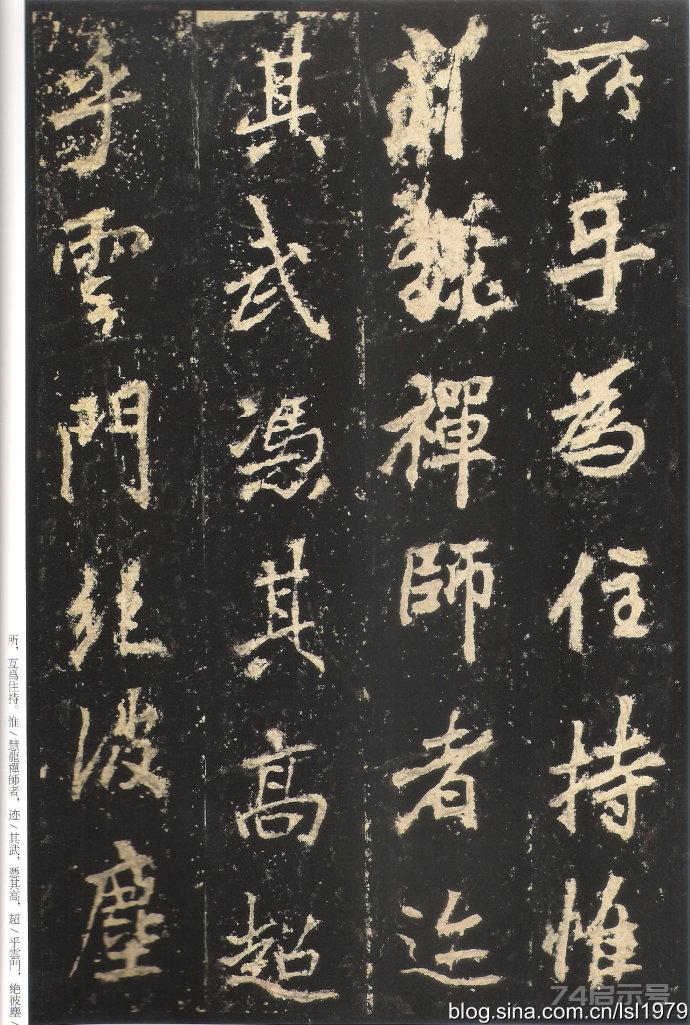 所互為住持惟
慧龍禪師者迹
其武憑其高超
乎雲門絕彼塵
所，互爲住持。惟／慧龍禪師者，迹／其武，憑其高，超／乎雲門，絶彼塵／
74启示号
blog.sina.com.cn/lsl1979